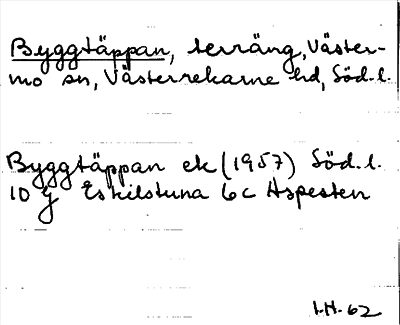 Byggtäppan, terräng, Väster-
mo sn, Västerrekarne hd, Söd. l.
Byggtäppan ek (1957) Söd. l.
10 J Eskilstuna 6c Aspesten
I.H. 62